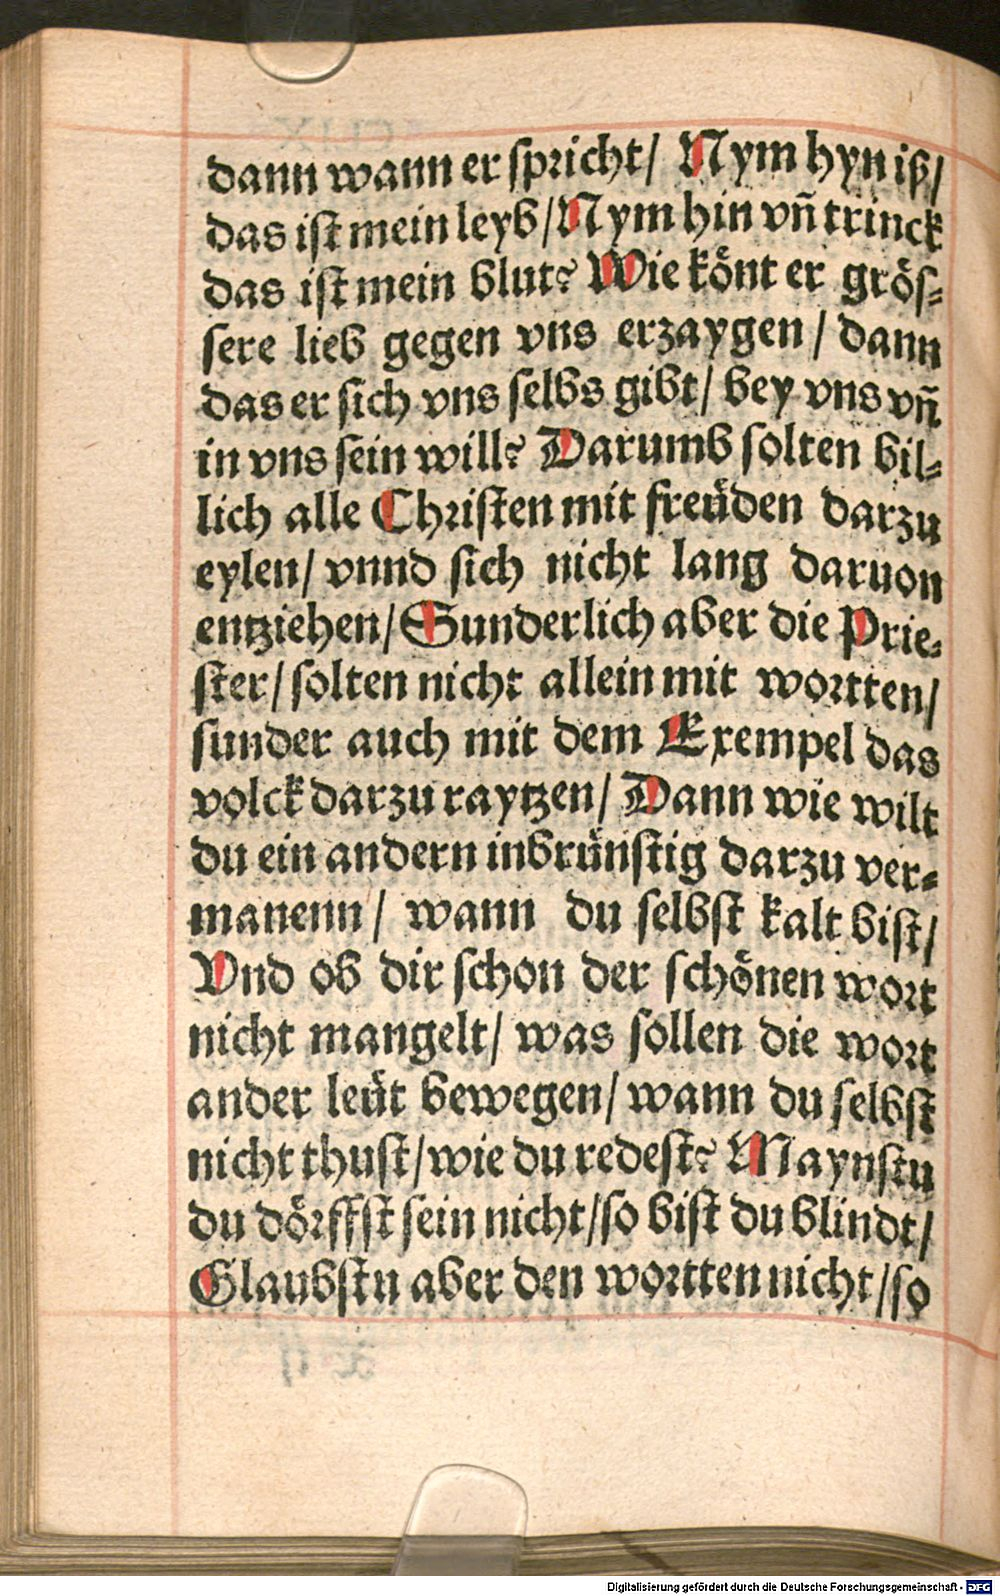 dann wann er spricht/ Nym hyn iß/
das ist mein leyb/ Nym hin vñ trinck
das ist mein blut? Wie könt er grös-
sere lieb gegen vns erzaygen/ dann
das er sich vns selbs gibt/ bey vns vñ
in vns sein will? Darumb solten bil-
lich alle Christen mit freüden darzu
eylen/ vnnd sich nicht lang daruon
entziehen/ Sunderlich aber die Prie-
ster/ solten nicht allein mit wortten/
sunder auch mit dem Exempel das
volck darzu raytzen/ Dann wie wilt
du ein andern inbrünstig darzu ver-
manenn/ wann du selbst kalt bist/
Vnd ob dir schon der schönen wort
nicht mangelt/ was sollen die wort
ander leüt bewegen/ wann du selbst
nicht thust/ wie du redest? Maynstu
du dörffst sein nicht/ so bist du blindt/
Glaubstu aber den wortten nicht/ so
Digitalisierung gefördert durch die Deutsche Forschungsgemeinschaft - DFG